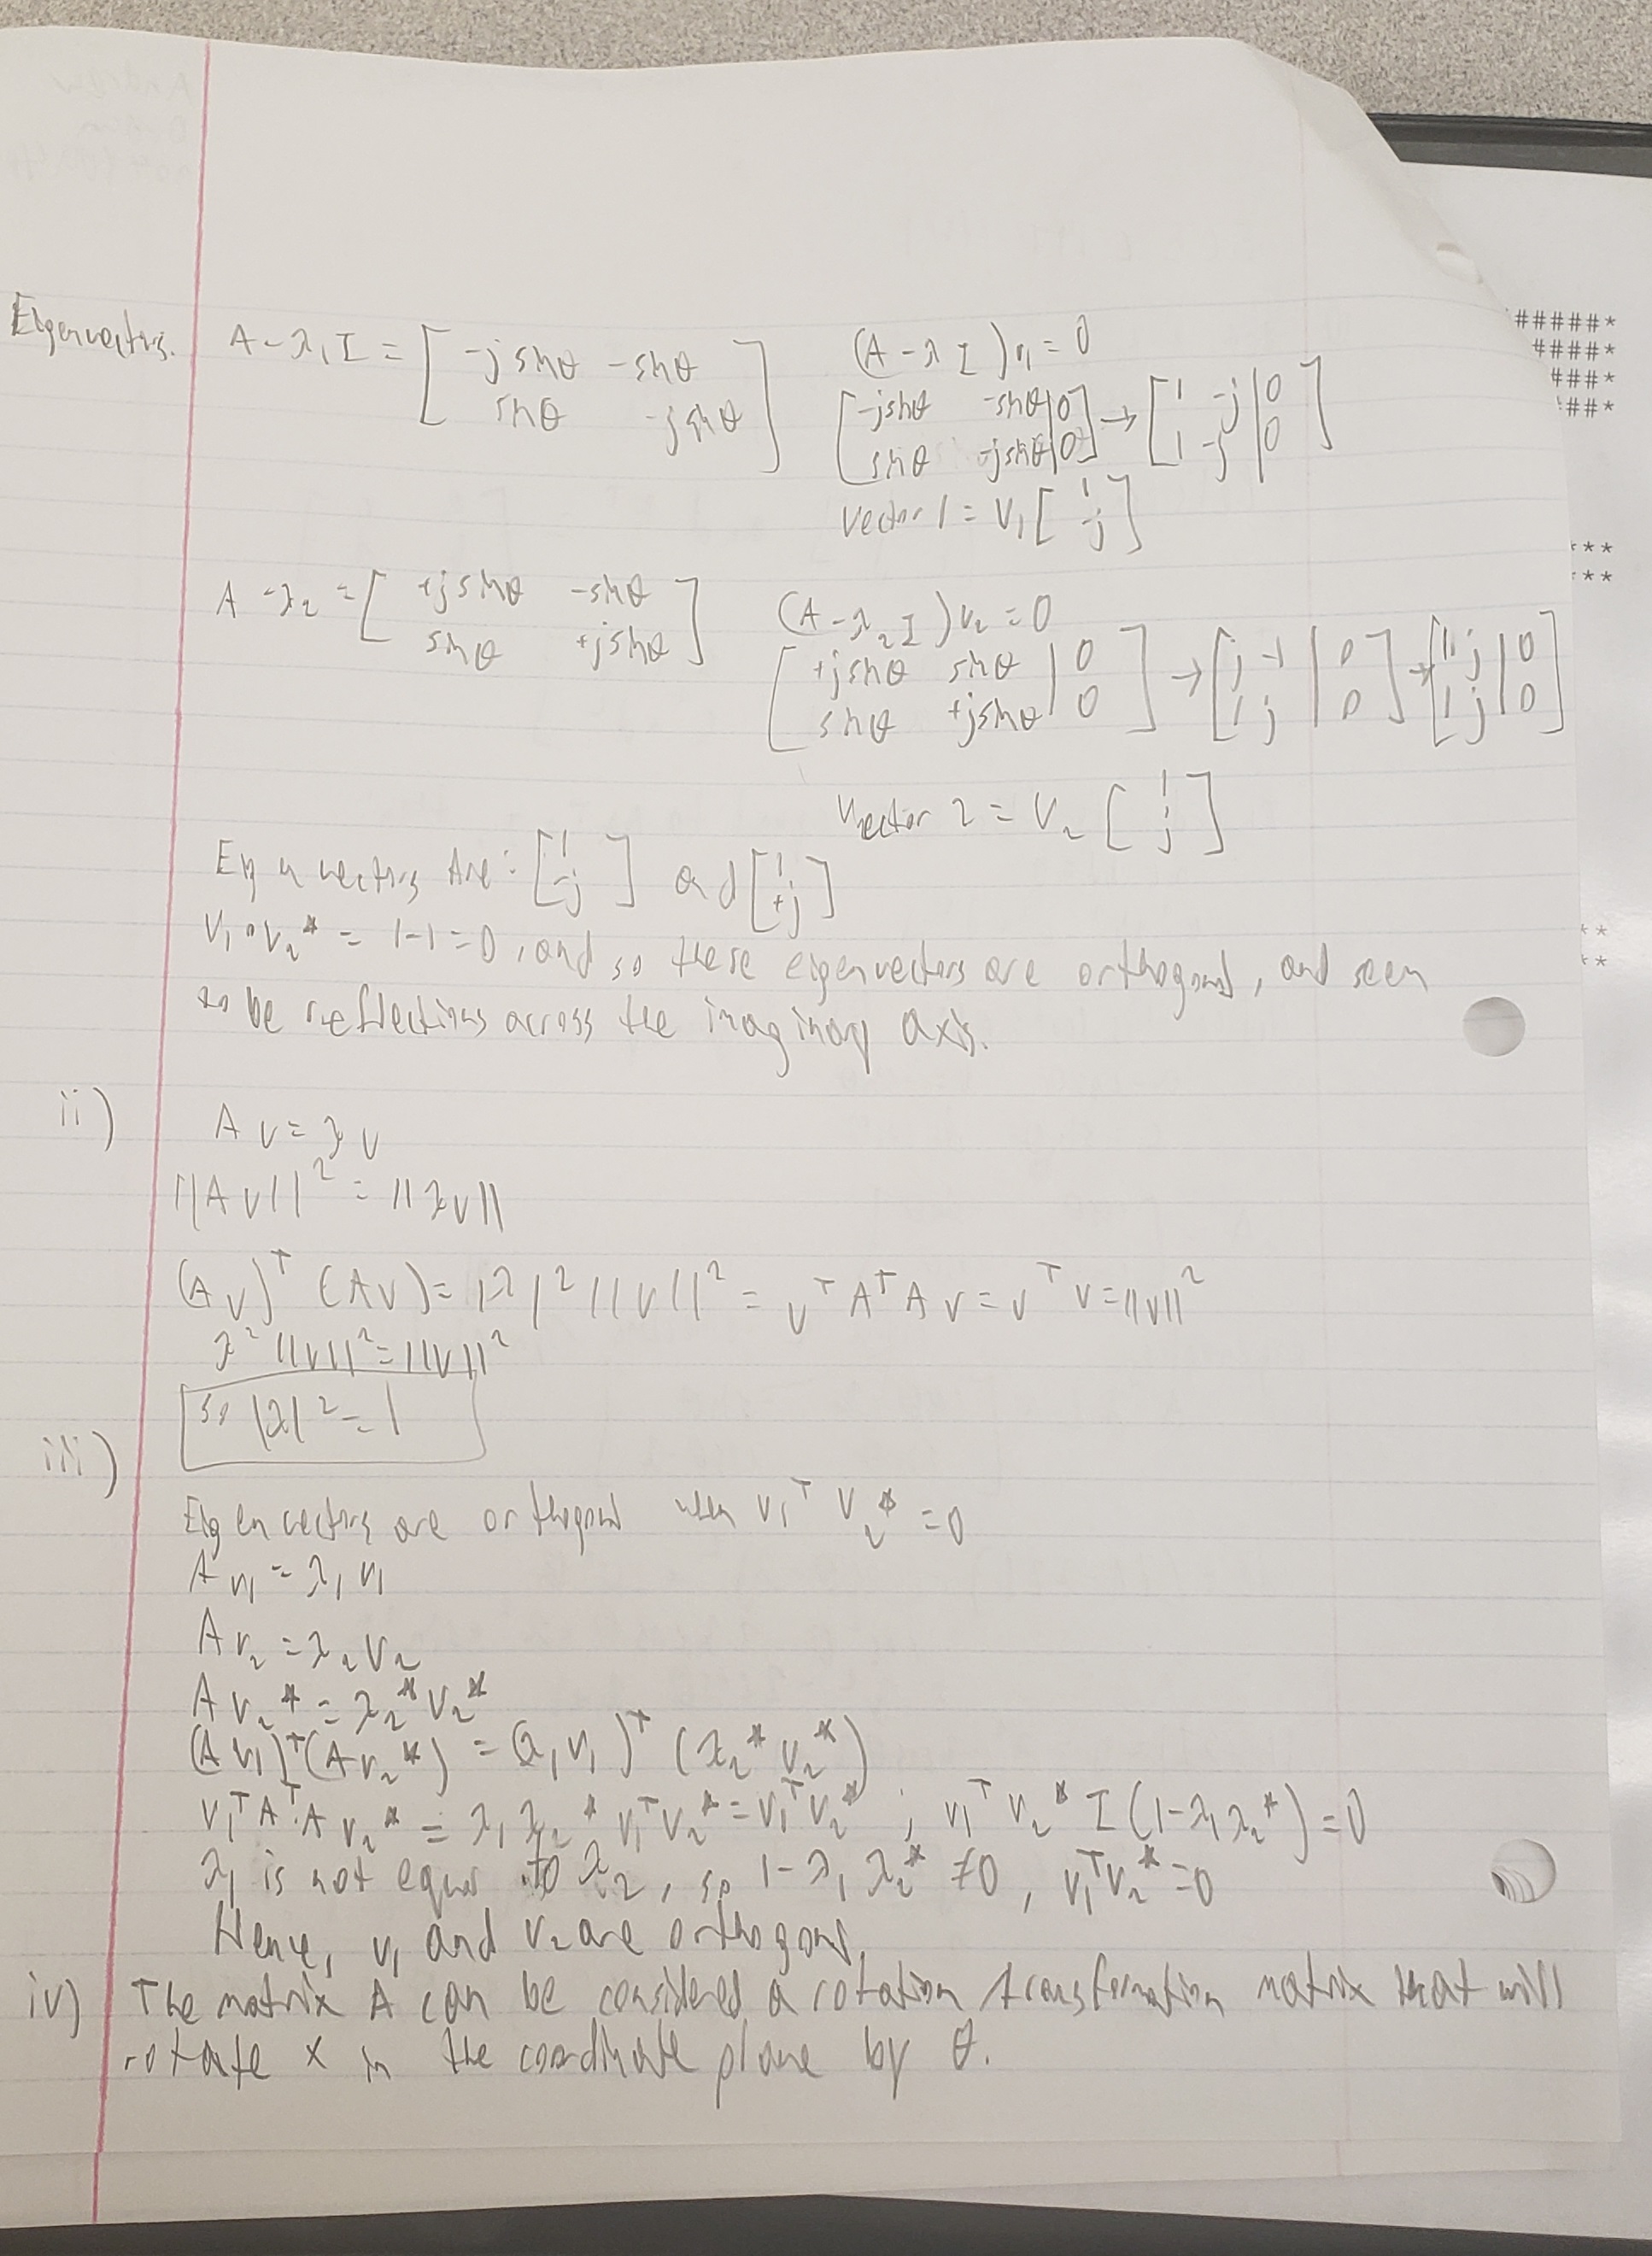 Eigenvectors. A - λ₁I = [ -jsinθ -sinθ ; sinθ -jsinθ ] (A - λI)v₁ = 0
[ -jsinθ -sinθ | 0 ; sinθ -jsinθ | 0 ] → [ 1 -j | 0 ; 1 -j | 0 ]
Vector 1 = V₁ [ 1 ; -j ]
A - λ₂ = [ +jsinθ -sinθ ; sinθ +jsinθ ] (A - λ₂I)v₂ = 0
[ +jsinθ sinθ | 0 ; sinθ +jsinθ | 0 ] → [ j -1 | 0 ; 1 j | 0 ] → [ 1 j | 0 ; 1 j | 0 ]
Vector 2 = V₂ [ 1 ; j ]
Eigenvectors Are: [ 1 ; -j ] and [ 1 ; +j ]
V₁ • V₂* = 1-1=0, and so these eigenvectors are orthogonal, and seen
to be reflections across the imaginary axis.
ii) Av = λv
||Av||² = ||λv||
(Av)ᵀ(Av) = |λ|²||v||² = vᵀAᵀAv = vᵀv = ||v||²
λ²||v||² = ||v||²
so |λ|² = 1
iii)
Eigenvectors are orthogonal when v₁ᵀ v₂* = 0
Av₁ = λ₁v₁
Av₂ = λ₂v₂
Av₂* = λ₂*v₂*
(Av₁)ᵀ(Av₂*) = (λ₁v₁)ᵀ(λ₂*v₂*)
v₁ᵀAᵀAv₂* = λ₁λ₂*v₁ᵀv₂* = v₁ᵀv₂* ; v₁ᵀv₂* I(1-λ₁λ₂*) = 0
λ₁ is not equal to λ₂, so 1-λ₁λ₂* ≠ 0, v₁ᵀv₂* = 0
Hence, v₁ and v₂ are orthogonal.
iv) The matrix A can be considered a rotation transformation matrix that will
rotate x in the coordinate plane by θ.
#####*
####*
###*
##*
***
***
**
**